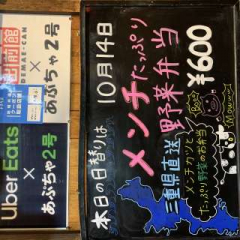 出前館
DEMAE-CAN
×
あぶちゃ2号
Uber Eats
×
あぶちゃ2号
本日の日替りは
10月14日
メンチたっぷり
野菜弁当
¥600
三重県直送
メンチカツと
たっぷり野菜のお弁当